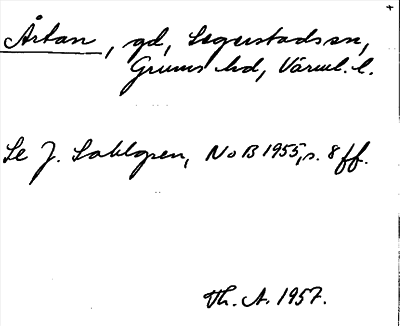 Årtan, gd, Segerstads sn,
Grums hd, Värml. l.
Se J. Sahlgren, NoB 1955, s. 8 ff.
Th. A. 1957.